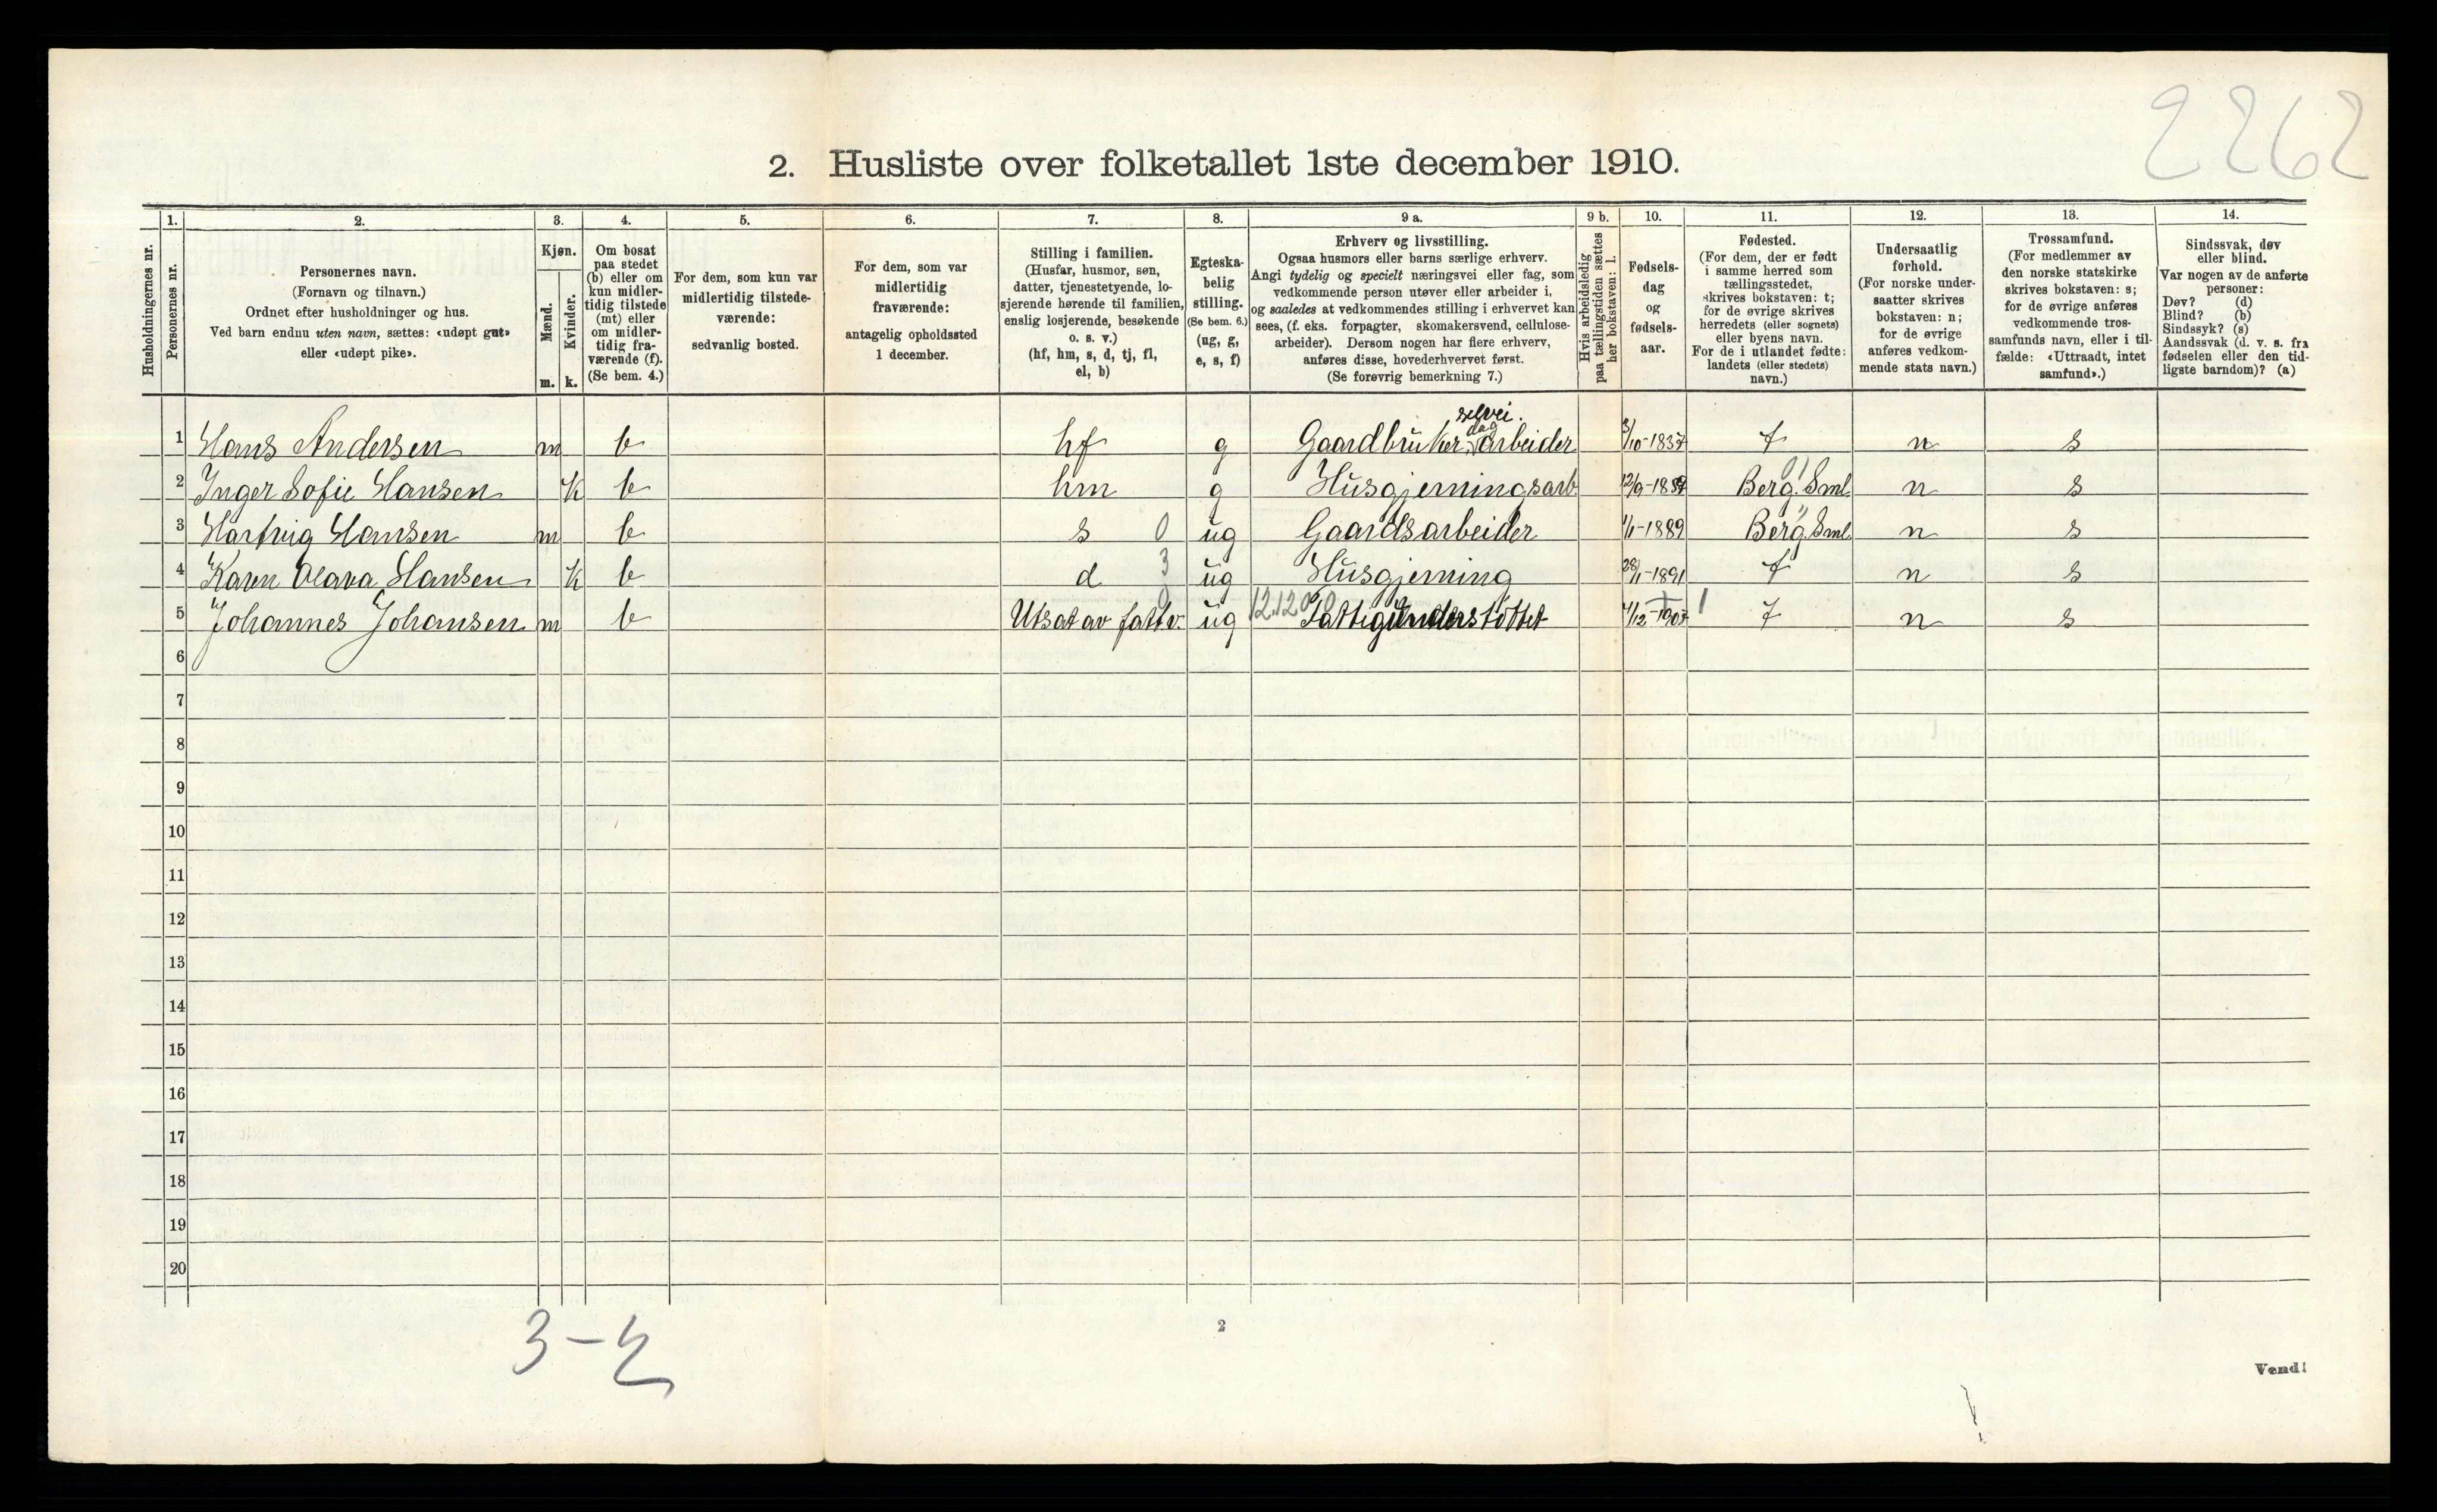 2262
2. Husliste over folketallet 1ste december 1910.
1. 2. 3. 4. 5. 6. 7. 8. 9 a. 9 b. 10. 11. 12. 13. 14.
Husholdningernes nr.
Personernes nr.
Personernes navn.
(Fornavn og tilnavn.)
Ordnet efter husholdninger og hus.
Ved barn endnu uten navn, sættes: «udøpt gut»
eller «udøpt pike».
Kjøn.
Mænd.
Kvinder.
m. k.
Om bosat
paa stedet
(b) eller om
kun midler-
tidig tilstede
(mt) eller
om midler-
tidig fra-
værende (f).
(Se bem. 4.)
For dem, som kun var
midlertidig tilstede-
værende:
sedvanlig bosted.
For dem, som var
midlertidig
fraværende:
antagelig opholdssted
1 december.
Stilling i familien.
(Husfar, husmor, søn,
datter, tjenestetyende, lo-
sjerende hørende til familien,
enslig losjerende, besøkende
o. s. v.)
(hf, hm, s, d, tj, fl,
el, b)
Egteska-
belig
stilling.
(Se bem. 6.)
(ug, g,
e, s, f)
Erhverv og livsstilling.
Ogsaa husmors eller barns særlige erhverv.
Angi tydelig og specielt næringsvei eller fag, som
vedkommende person utøver eller arbeider i,
og saaledes at vedkommendes stilling i erhvervet kan
sees, (f. eks. forpagter, skomakersvend, cellulose-
arbeider). Dersom nogen har flere erhverv,
anføres disse, hovederhvervet først.
(Se forøvrig bemerkning 7.)
Hvis arbeidsledig
paa tællingstiden sættes
her bokstaven: l.
Fødsels-
dag
og
fødsels-
aar.
Fødested.
(For dem, der er født
i samme herred som
tællingsstedet,
skrives bokstaven: t;
for de øvrige skrives
herredets (eller sognets)
eller byens navn.
For de i utlandet fødte:
landets (eller stedets)
navn.)
Undersaatlig
forhold.
(For norske under-
saatter skrives
bokstaven: n;
for de øvrige
anføres vedkom-
mende stats navn.)
Trossamfund.
(For medlemmer av
den norske statskirke
skrives bokstaven: s;
for de øvrige anføres
vedkommende tros-
samfunds navn, eller i til-
fælde: «Uttraadt, intet
samfund».)
Sindssvak, døv
eller blind.
Var nogen av de anførte
personer:
Døv? (d)
Blind? (b)
Sindssyk? (s)
Aandssvak (d. v. s. fra
fødselen eller den tid-
ligste barndom)? (a)
selvei.
dag
1 Hans Andersen m b hf g Gaardbruker, arbeider 3/10-1837 t n s
2 Inger Sofie Hansen k b hm g Husgjerningsarb. 12/9-18 Berg. Sml. n s
3 Hartvig Hansen m b s 0 ug Gaardsarbeider 1/1-1889 Berg. Sml. n s
4 Karen Olava Hansen k b d 3 ug Husgjerning 28/1-1891 t n s
5 Johannes Johansen m b Utsat av fattv. ug Fattigunderstöttet 4/12-1907 t n s
6
7
8
9
10
11
12
13
14
15
16
17
18
19
20
3-2
2
Vend!